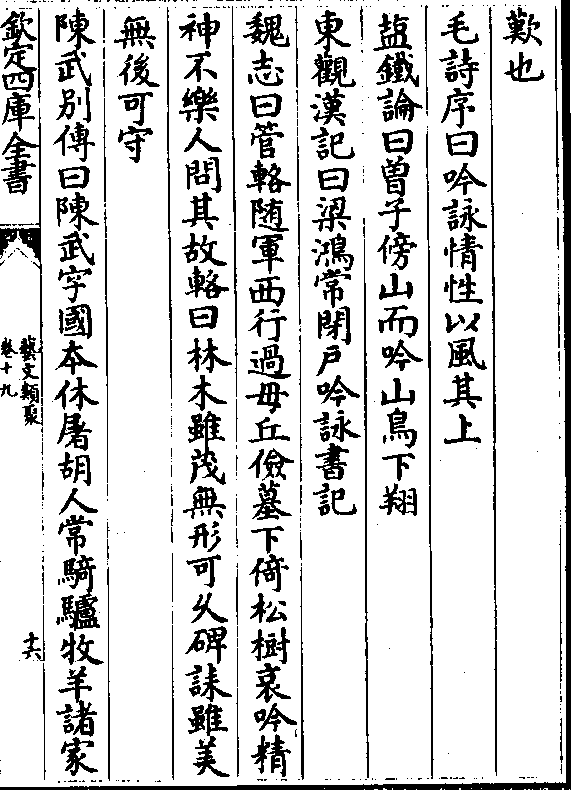 歎也
毛詩序曰吟詠情性以風其上
鹽鐵論曰曽子傍山而吟山鳥下翔
東觀漢記曰梁鴻常閉戸吟詠書記
魏志曰管輅随軍西行過毋丘儉墓下倚松樹哀吟精
神不樂人問其故輅曰林木雖茂無形可乆碑誄雖美
無後可守
陳武别傳曰陳武字國本休屠胡人常騎驢牧羊諸家
欽定四庫全書
藝文類聚
卷十九
十六